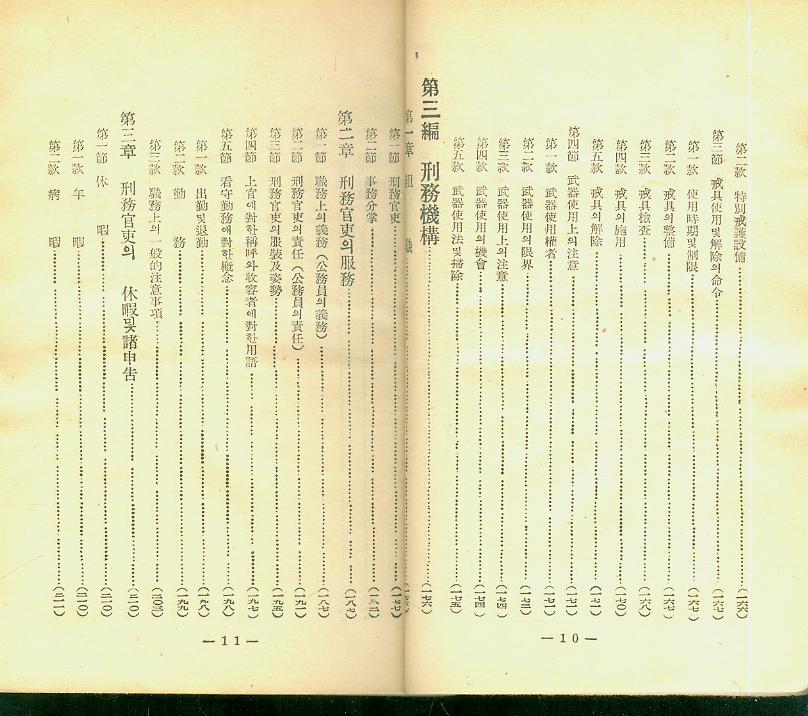 第二款 特別戒護設備 (一六六)
第三節 戒具使用및解除의命令 (一六七)
第一款 使用時期및制限 (一六七)
第二款 戒具의整備 (一六七)
第三款 戒具檢査 (一六八)
第四款 戒具의施用 (一七0)
第五款 戒具의解除 (一七一)
第四節 武器使用上의注意 (一七一)
第一款 武器使用權者 (一七一)
第二款 武器使用의限界 (一七三)
第三款 武器使用上의注意 (一七四)
第四款 武器使用의機會 (一七四)
第五款 武器使用法및掃除 (一七五)
第三編 刑務機構 (一七六)
— 10 —
第一章 組 機
第一節 刑務官吏 (一七七)
第二節 事務分掌 (一八二)
第二章 刑務官吏의服務 (一八七)
第一節 職務上의義務(公務員의義務) (一八七)
第二節 刑務官吏의責任(公務員의責任) (一九一)
第三節 刑務官吏의服裝及姿勢 (一九五)
第四節 上官에對한稱呼와收容者에對한用語 (一九七)
第五節 看守勤務에對한概念 (一九八)
第一款 出勤및退勤 (一九八)
第二款 勤 務 (一九九)
第三款 職務上의一般的注意事項 (二0三)
第三章 刑務官吏의 休暇및諸申告 (二一0)
第一節 休 暇 (二一0)
第一款 年 暇 (二一0)
第二款 病 暇 (二一一)
— 11 —